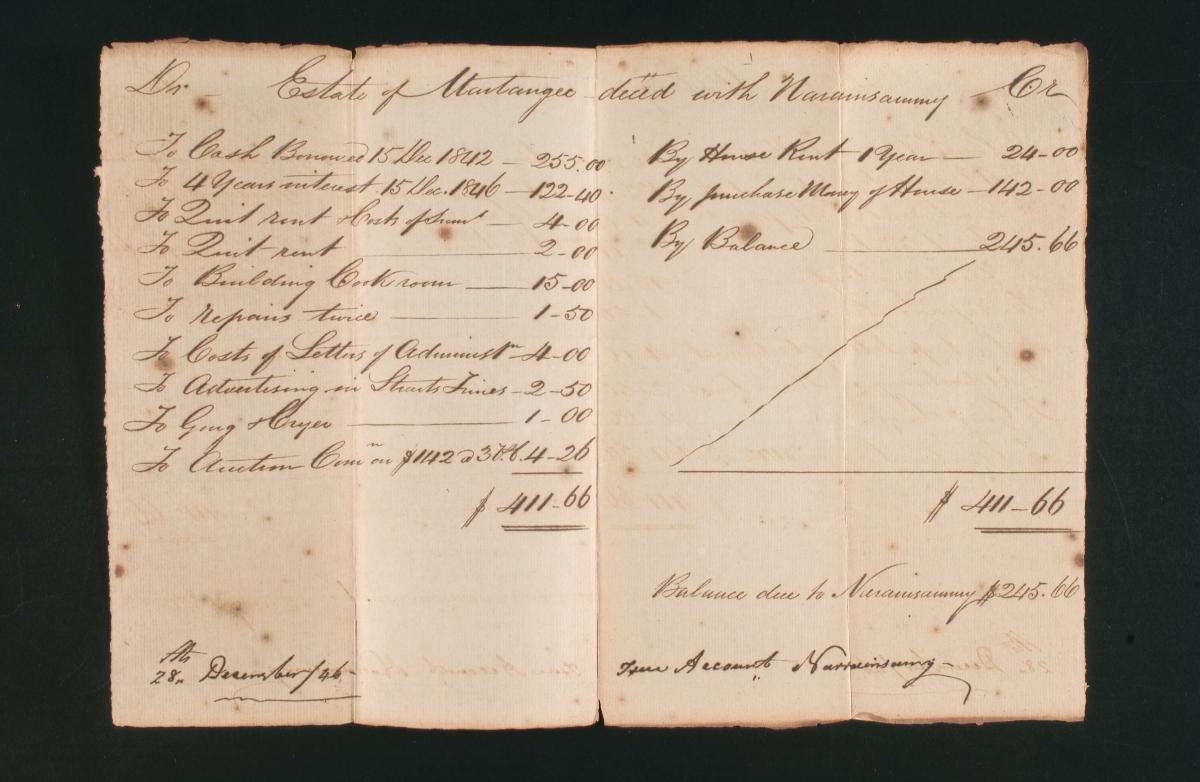 Dr Estate of Martangee deced with Narainsammy Cr
To Cash Borrowed 15 Dec 1842 — 255.00
To 4 Years interest 15 Dec. 1846 — 122-40
To Quit rent & Costs of — 4-00
To Quit rent — 2-00
To Building Cook room — 15-00
To repairs twice — 1-50
To Costs of Letters of Administn — 4-00
To Advertising in Straits Times — 2-50
To Gong & Cryer — 1-00
To Auction Comn on $142 @ 3 4-26
$ 411-66
By House Rent 1 Year — 24-00
By purchase Money of House — 142-00
By Balance — 245.66
$ 411-66
Balance due to Narainsammy $245.66
28th December/46-
True Account Narrainsamy